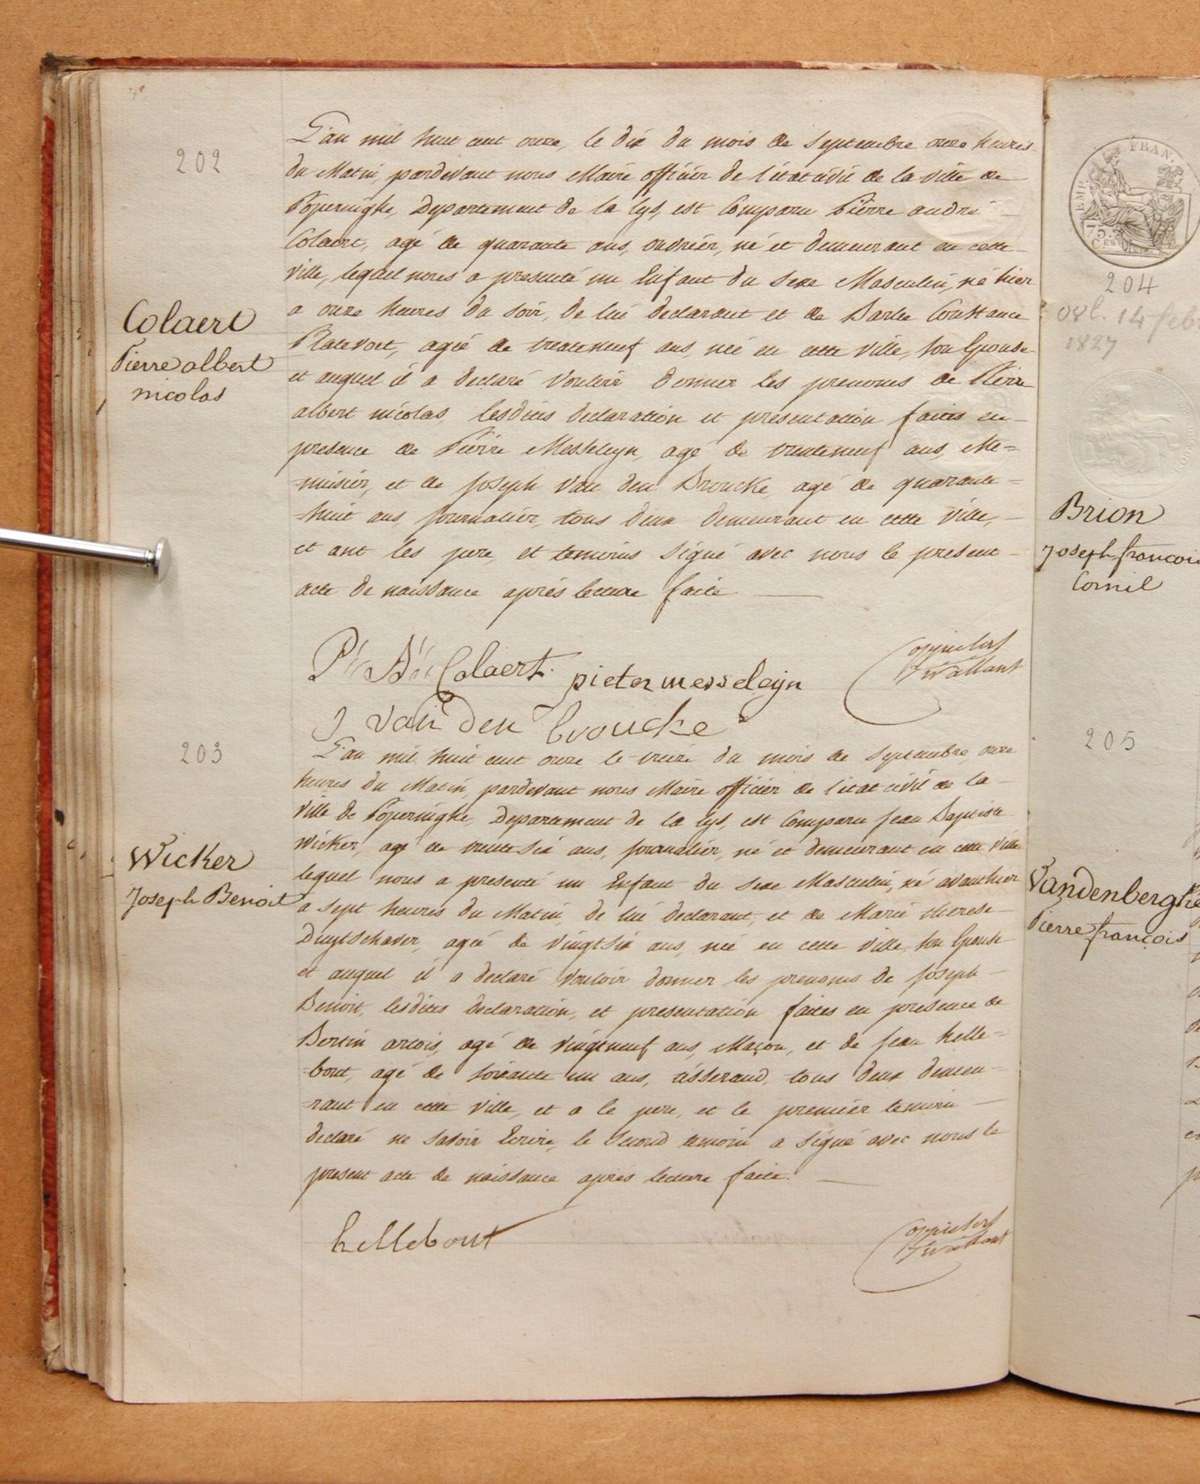 202
L'an mil huit cent onze, le dix du mois de septembre onze heures
du Matin, pardevant nous Maire officier de l'état civil de la ville de
Poperinghe, Departement de la Lys, est Comparu Pierre andré
Colaert, agé de quarante ans, ordrier, né et demeurant en cette
ville, lequel nous a presenté un Enfant du sexe Masculin, né hier
a onze heures du soir, de lui declarant et de Barbe Constance
Platevoet, agée de trenteneuf ans, née en cette ville, son Epouse
et auquel il a declaré vouloir donner les prenoms de Pierre
albert nicolas, lesdites declaration et presentation faites en
presence de Pierre Messeleyn, agé de trenteneuf ans, Me=
=nuisier, et de Joseph Van den Broucke, agé de quarante =
=huit ans, journalier, tous deux demeurant en cette ville,
et ont les pere et temoins signé avec nous le present
acte de naissance après lecture faite
Colaert
Pierre albert
nicolas
P. A. Colaert. pieter messeleyn
J van den broucke
203
L'an mil huit cent onze le treize du mois de septembre, onze
heures du Matin, pardevant nous Maire officier de l'état civil de la
ville de Poperinghe, Departement de la Lys, est Comparu Jean Baptiste
Wicker, agé de trente six ans, journalier, né et demeurant en cette ville
lequel nous a presenté un Enfant du sexe Masculin, né avanthier
a sept heures du Matin, de lui declarant, et de Marie therese
Duytschaver, agée de vingtsix ans, née en cette ville, son Epouse
et auquel il a declaré vouloir donner les prenoms de Joseph
Benoit, lesdites declaration, et presentation faites en presence de
Bertin artois, agé de vingtneuf ans, Maçon, et de Jean helle=
=bout, agé de soixante un ans, tisserand, tous deux demeu=
=rant en cette ville, et a le pere, et le premier temoin
declaré ne savoir Ecrire, le second temoin a signé avec nous le
present acte de naissance après lecture faite.
Wicker
Joseph Benoit
hellebout
204
obl. 14 feb.
1827
Brion
Joseph françois
Cornil
205
Vandenberghe
Pierre françois